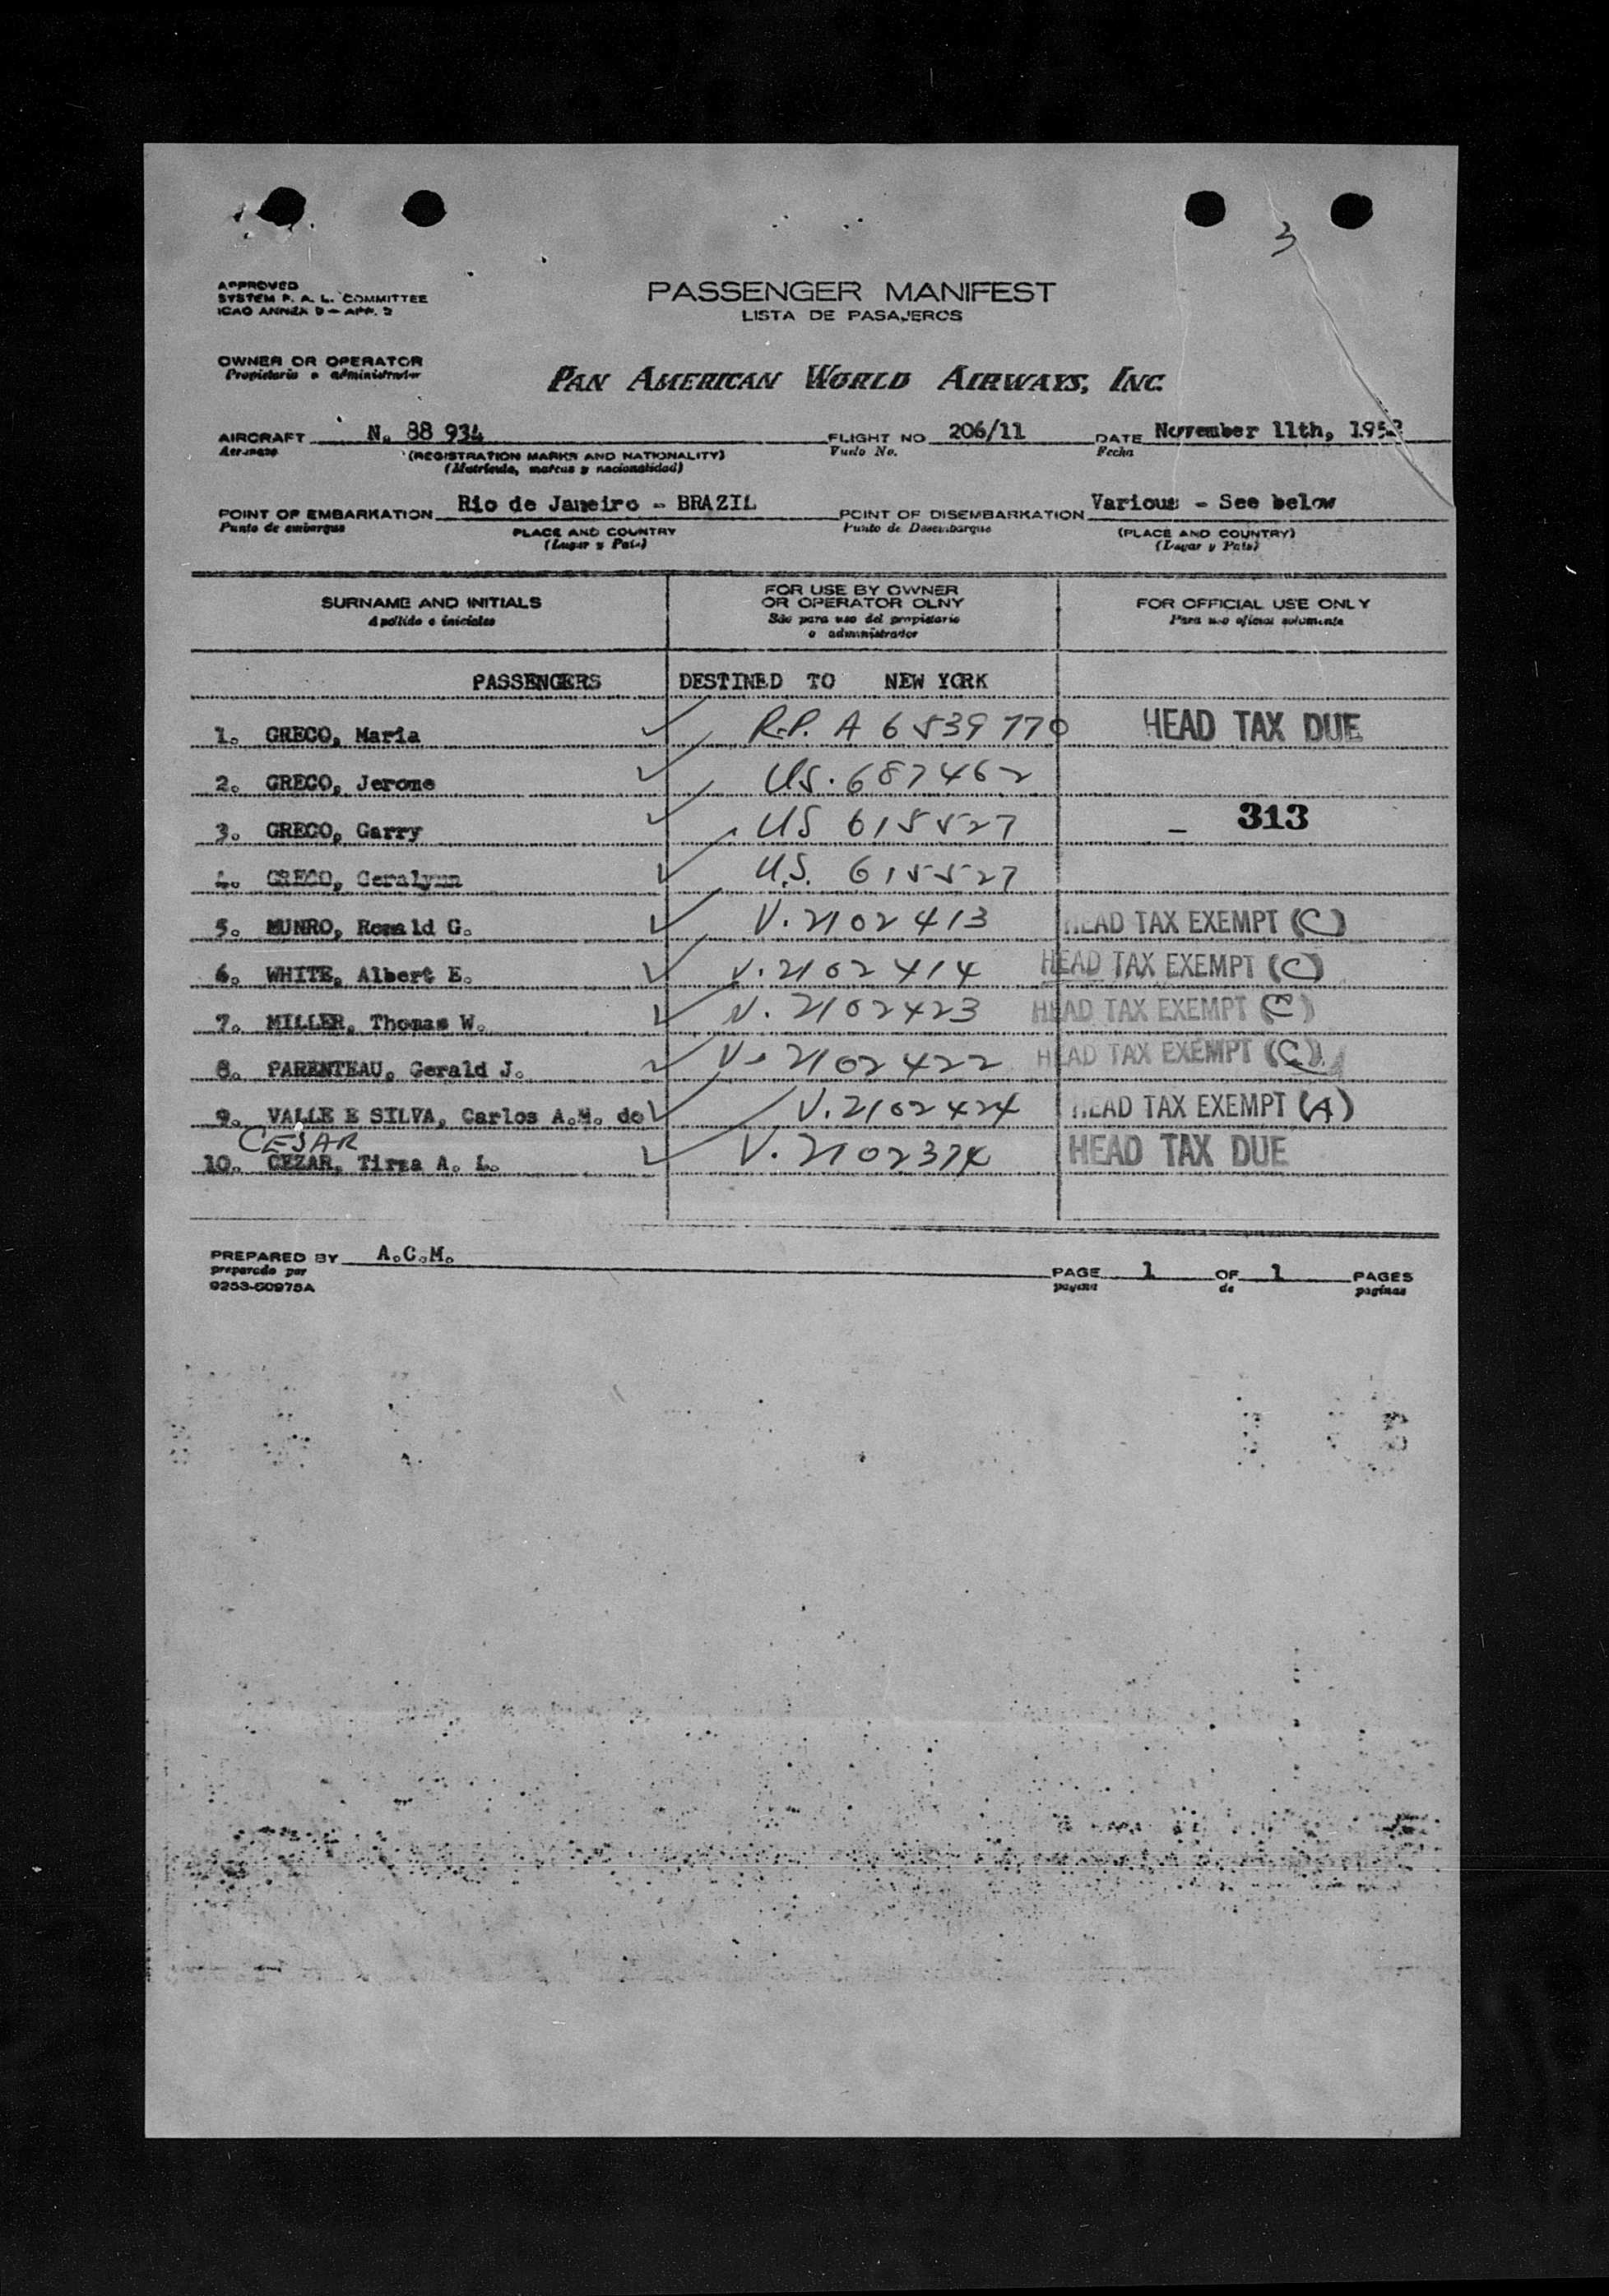 3
APPROVED
SYSTEM P. A. L. COMMITTEE
ICAO ANNEX 9 — APP. 2
PASSENGER MANIFEST
LISTA DE PASAJEROS
OWNER OR OPERATOR
Propietario o administrador
PAN AMERICAN WORLD AIRWAYS, INC.
AIRCRAFT N. 88 934 FLIGHT NO 206/11 DATE November 11th, 195
(REGISTRATION MARKS AND NATIONALITY) Vuelo No. Fecha
(Matricula, marcas y nacionalidad)
POINT OF EMBARKATION Rio de Janeiro - BRAZIL POINT OF DISEMBARKATION Various - See below
Punto de embarque PLACE AND COUNTRY Punto de Desembarque (PLACE AND COUNTRY)
(Lugar y Pais) (Lugar y Pais)
SURNAME AND INITIALS FOR USE BY OWNER OR OPERATOR OLNY FOR OFFICIAL USE ONLY
Apellido e iniciales propietario o administrador Para uso oficial solamente
PASSENGERS DESTINED TO NEW YORK
1. GRECO, Maria R.P. A 6539770 HEAD TAX DUE
2. GRECO, Jerome US. 687462
3. GRECO, Garry US 615527 - 313
4. GRECO, Geralynn U.S. 615527
5. MUNRO, Ronald G. V. 2102413 HEAD TAX EXEMPT (C)
6. WHITE, Albert E. V. 2102414 HEAD TAX EXEMPT (C)
7. MILLER, Thomas W. V. 2102423 HEAD TAX EXEMPT (C)
8. PARENTEAU, Gerald J. V. 2102422 HEAD TAX EXEMPT (C)
9. VALLE E SILVA, Carlos A.M. do V. 2102424 HEAD TAX EXEMPT (A)
CESAR
10. CEZAR, Tirza A. L. V. 2102374 HEAD TAX DUE
PREPARED BY A.C.M.
preparado por
9253-60975A
PAGE 1 OF 1 PAGES
pagina de paginas